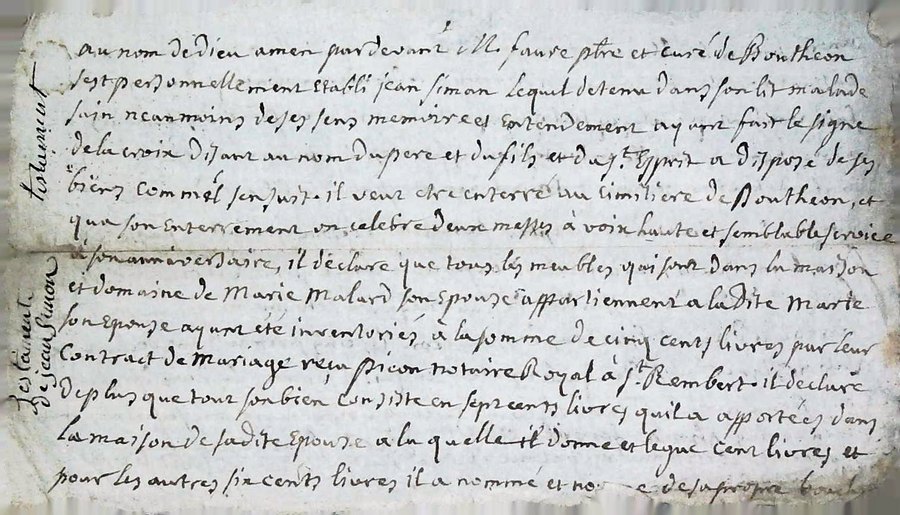 au nom de dieu amen pardevant M. faure ptre et curé de Boutheon
sest personnellement Etabli jean simon Lequel detenu dans son lit malade
sain neanmoins de ses sens memoires et Entendement ayant fait le signe
de la croix disant au nom du pere et du fils et du st. Esprit a dispozé de ses
biens Comme sensuit. il veut etre enterré au Cimitiere de Boutheon, et
qua son Enterrement on celebre deux messes à voix haute et semblable service
à son anniversaire, il declare que tous les meubles qui sont dans la maison
et domaine de Marie Malard son Epouze appartiennent a la dite Marie
son Epouze ayant été inventoriés à la somme de cinq cents livres par leur
Contract de Mariage reçu picon notaire Royal à st. Rembert. il declare
de plus que tout son bien consiste en sept cents livres quil a apportées dans
la maison de sa dite Epouze a la quelle il donne et legue cent livres et
pour les autres six cents livres il a nommé et de sa propre bouche
testament
Testament
de jean Simon